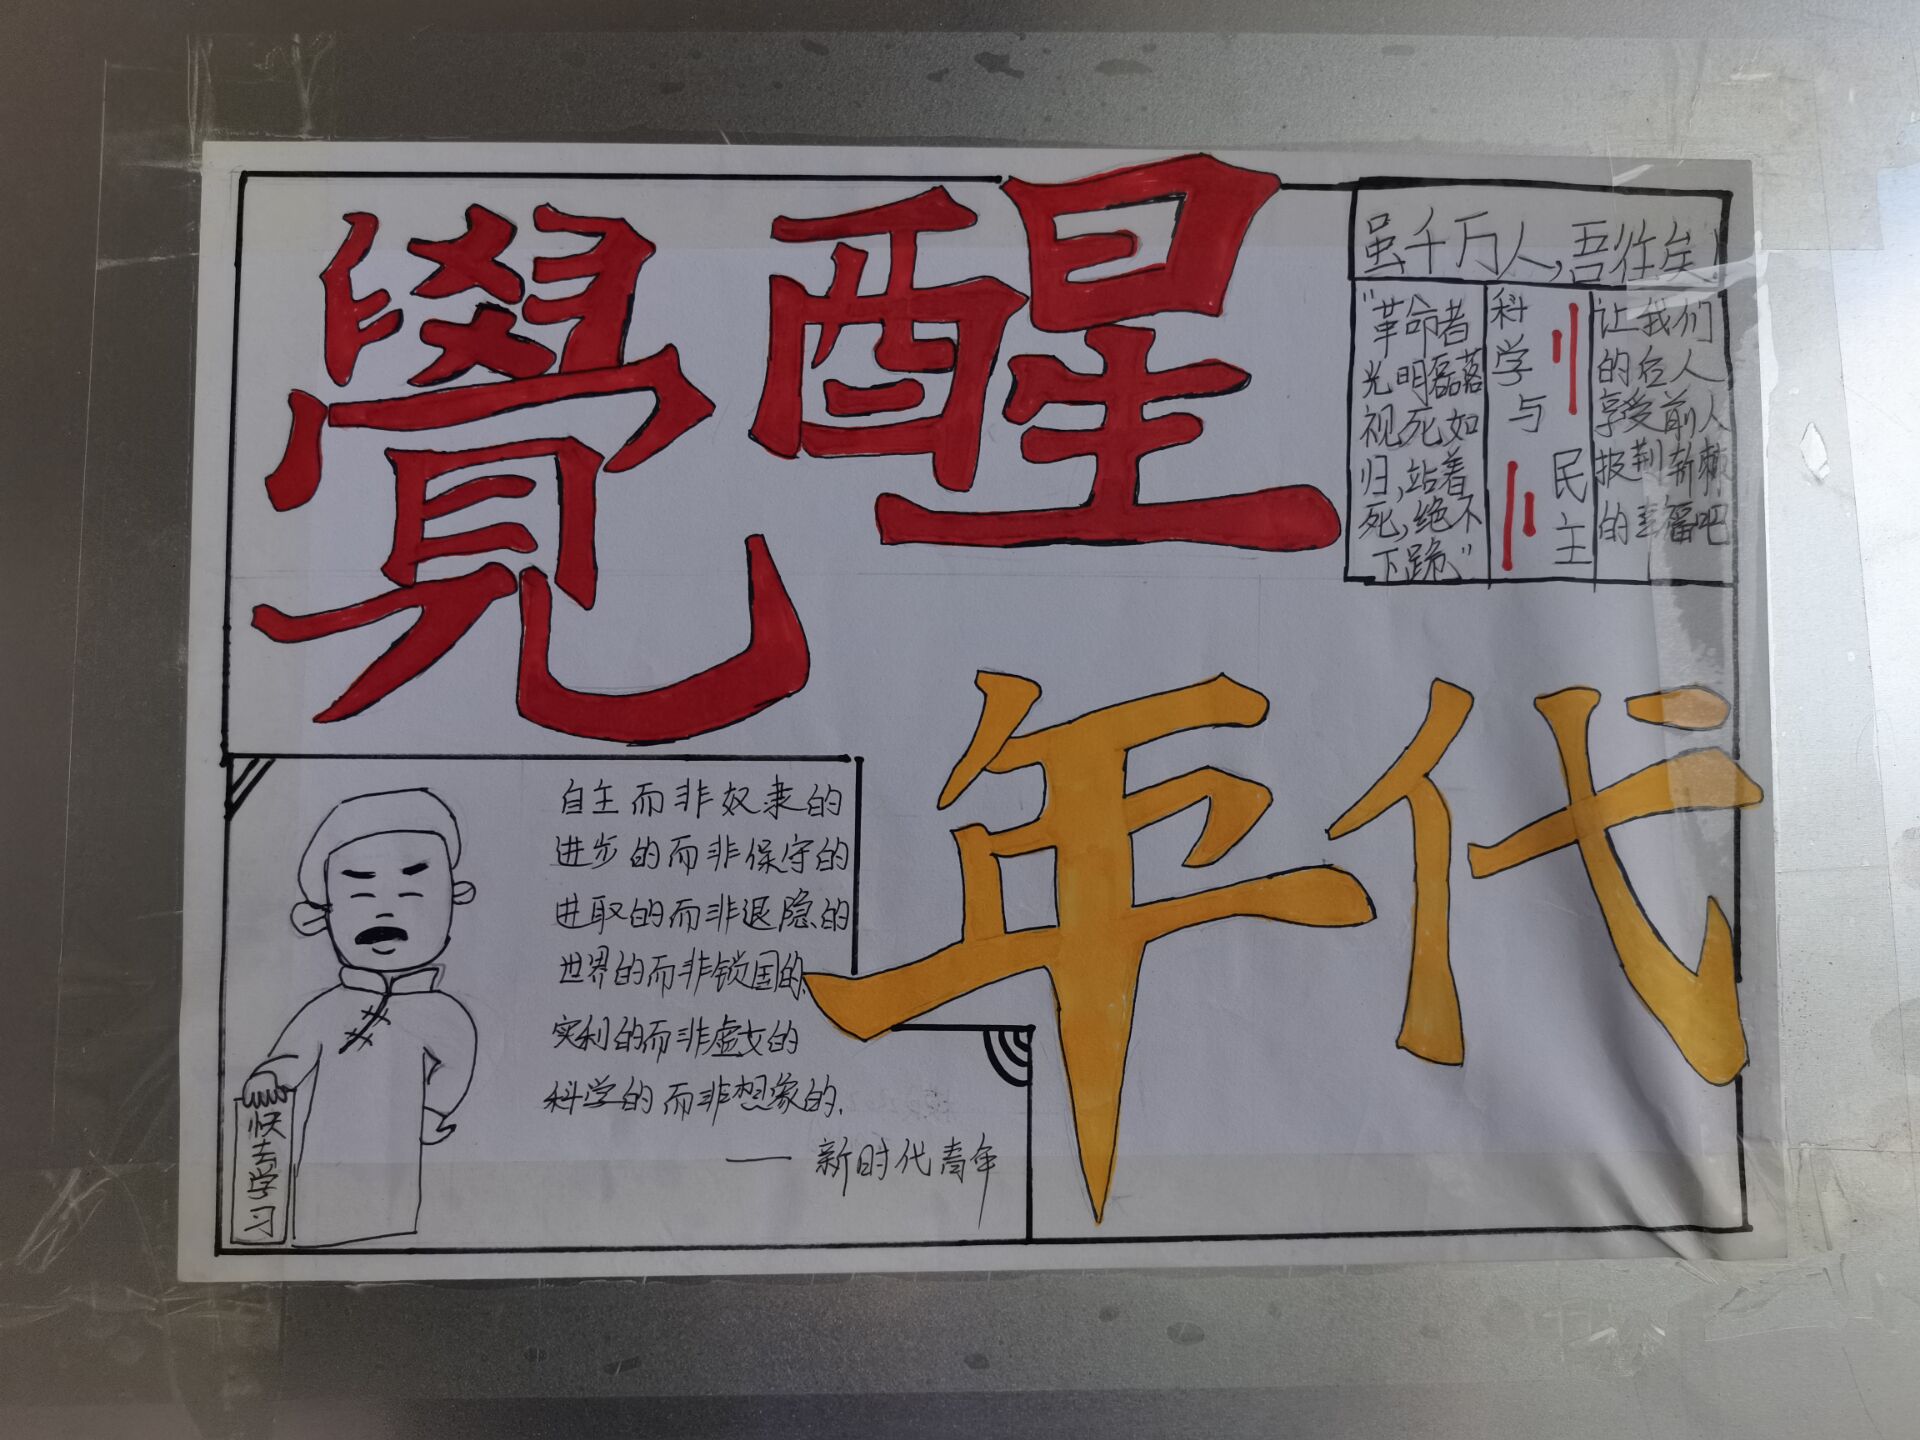 覺醒
年代
虽千万人,吾往矣!
"革命者
光明磊落
视死如
归,站着
死,绝不
下跪"
科学与
民主
让我们
的后人
享受前人
披荆斩棘
的幸福吧
自主而非奴隶的
进步的而非保守的
进取的而非退隐的
世界的而非锁国的.
实利的而非虚文的
科学的而非想象的.
—— 新时代青年
快去学习